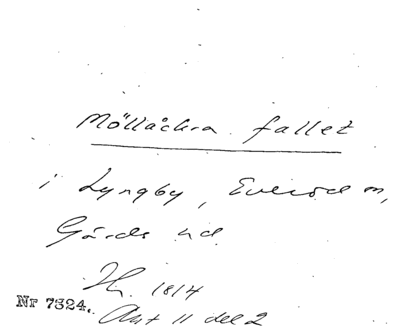 Möllåckra fallet
i Lyngby, Everöd sn,
Gärds hd
1814
Nr 7324.
Akt 11 del 2